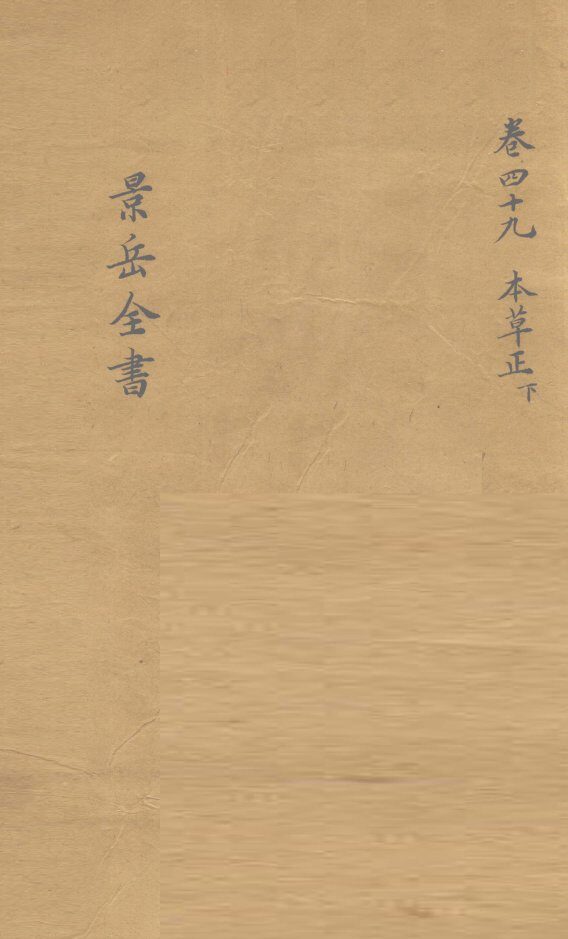 卷四十九 本草正下
景岳全書